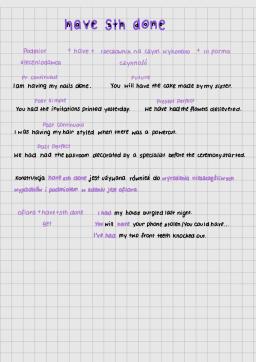 have sth done
Podmiot + have + rzeczownik na czym wykonano + III forma
zleceniodawca czynność
Pr continuous Future
I am having my nails done. You will have the cake made by my sister.
Past Simple Present Perfect
You had the invitations printed yesterday. We have had the flowers delivered.
Past Continuous
I was having my hair styled when there was a powercut.
Past Perfect
We had had the ballroom decorated by a specialist before the ceremony started.
Konstrukcja have sth done jest używana również do wyrażania niebezpiecznych
wypadków i podmiotem w zdaniu jest ofiara.
ofiara + have + sth done I had my house burgled last night.
get You will have your phone stolen / You could have...
I've had my two front teeth knocked out.